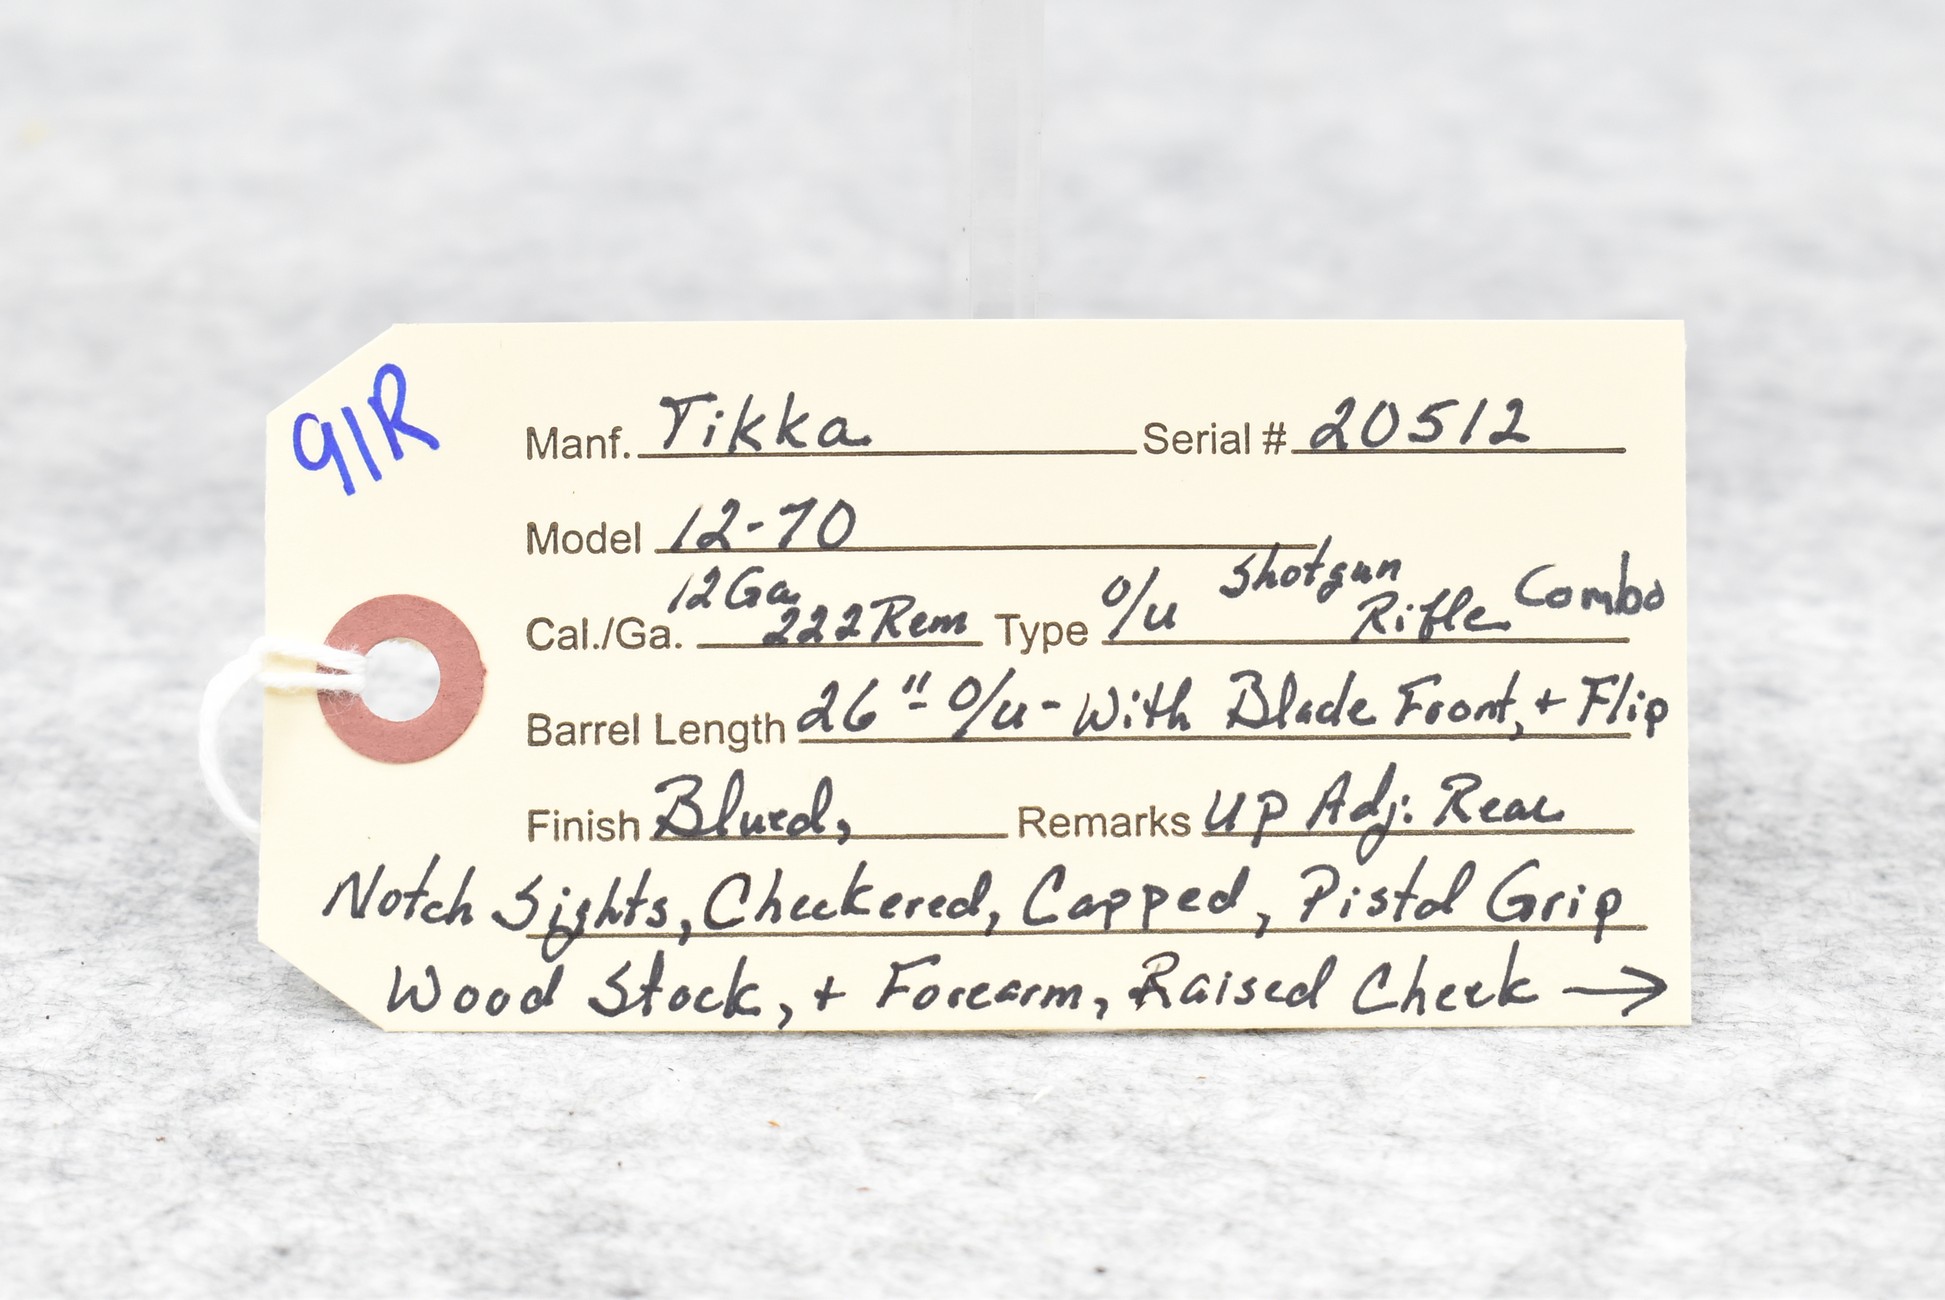 91R
Manf. Tikka Serial # 20512
Model 12-70
Cal./Ga. 12Ga. 222 Rem Type O/u Shotgun Rifle Combo
Barrel Length 26"- O/u - With Blade Front, + Flip
Finish Blued, Remarks UP Adj: Rear
Notch Sights, Checkered, Capped, Pistol Grip
Wood Stock, + Forearm, Raised Cheek →